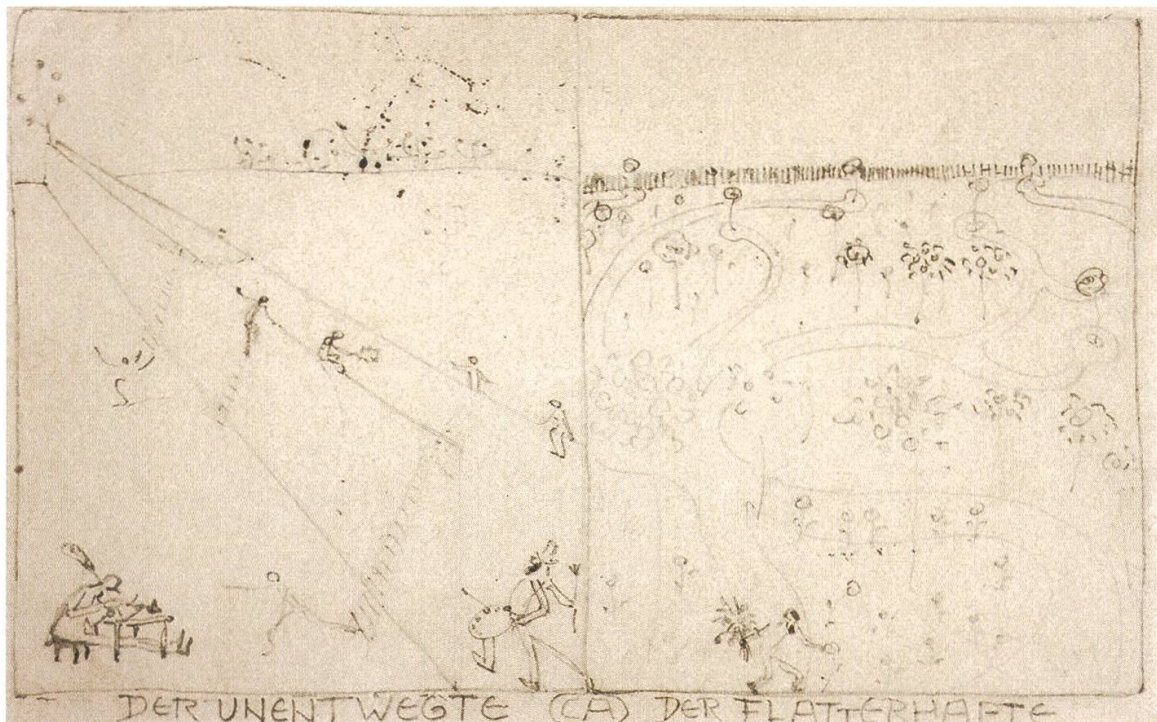 DER UNENTWEGTE (CA) DER FLATTERHAFTE